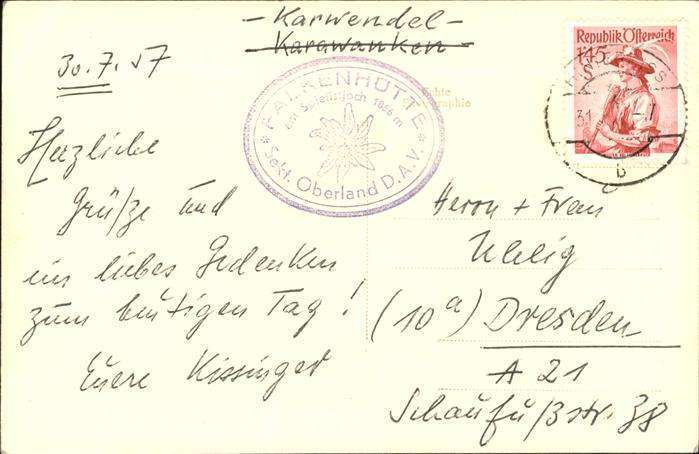 - Karwendel -
- Karawanken -
30.7.57
FALKENHÜTTE
am Spielistjoch 1856 m
Sekt. Oberland D.A.V.
Republik Österreich
1.45
31
b
Echte
Photographie
Herzliche
Grüße und
ein liebes Gedenken
zum heutigen Tag!
Euere Kissinger
Herrn + Frau
Uhlig
(10a) Dresden
A 21
Schaufußstr. 38